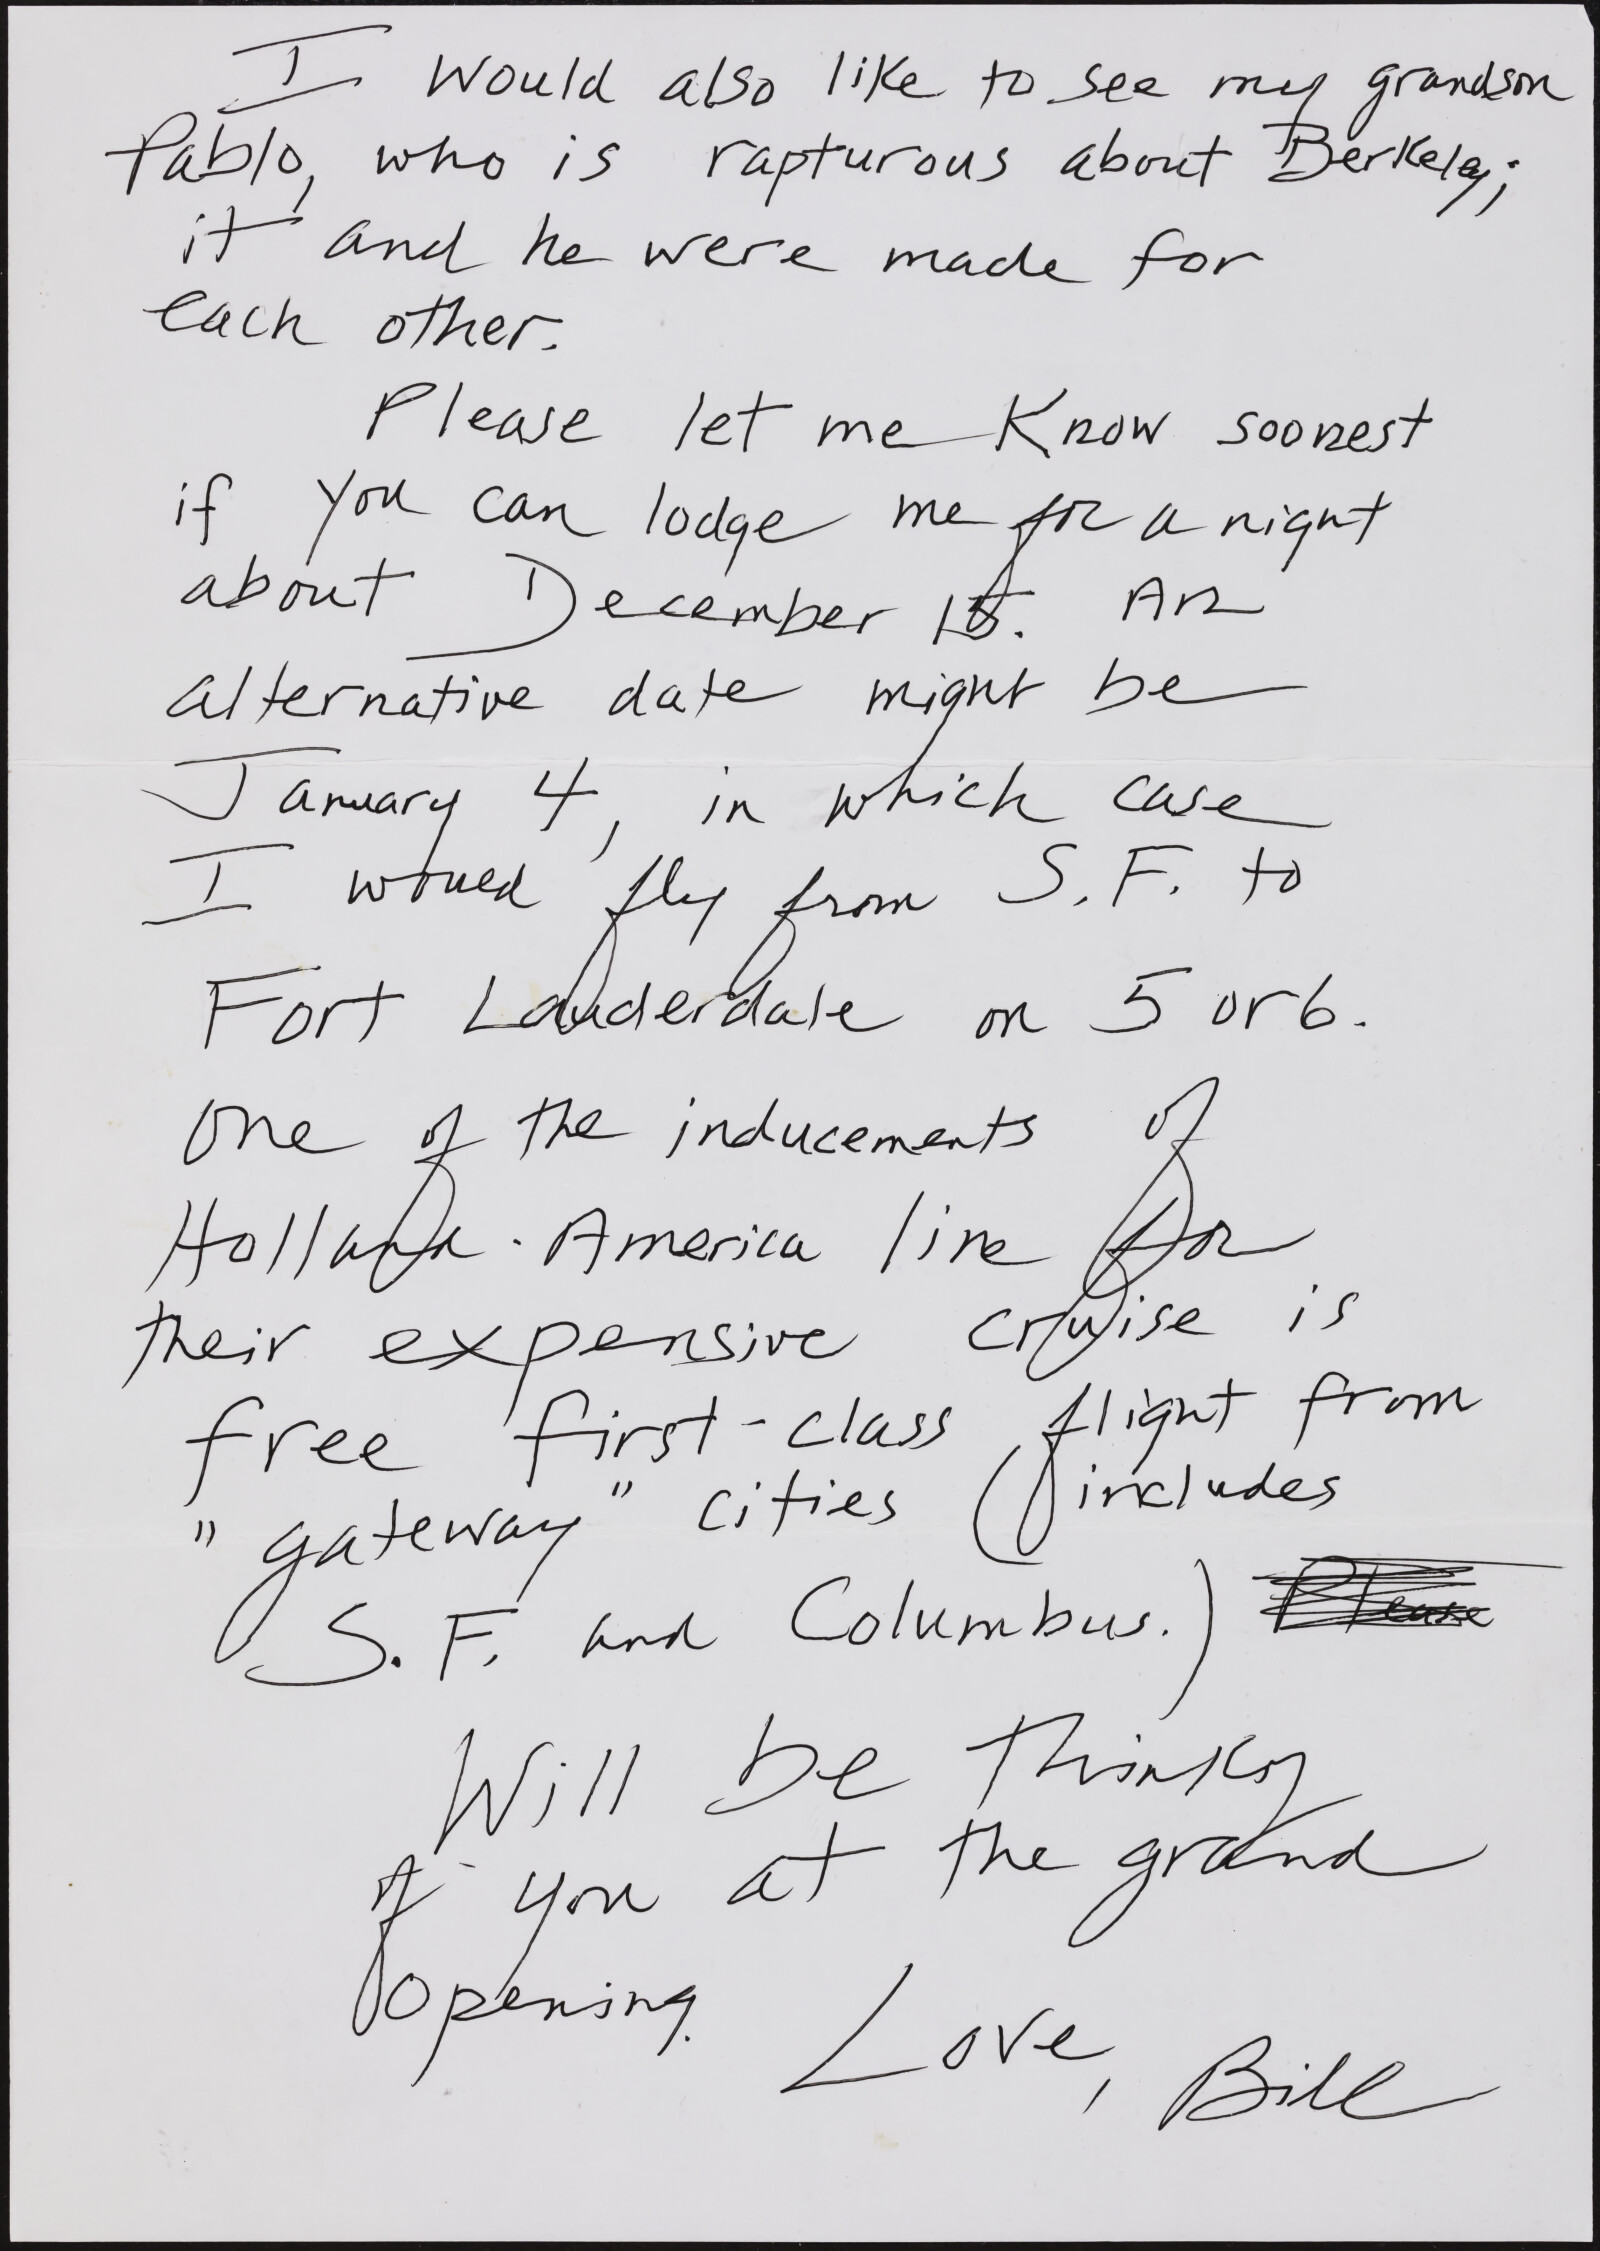 I would also like to see my grandson
Pablo, who is rapturous about Berkeley;
it and he were made for
each other.
Please let me know soonest
if you can lodge me for a night
about December 15. An
alternative date might be
January 4, in which case
I would fly from S.F. to
Fort Lauderdale on 5 or 6.
One of the inducements of
Holland-America line for
their expensive cruise is
free first-class flight from
"gateway" cities (includes
S.F. and Columbus.) Please
Will be thinking
of you at the grand
opening.
Love, Bill